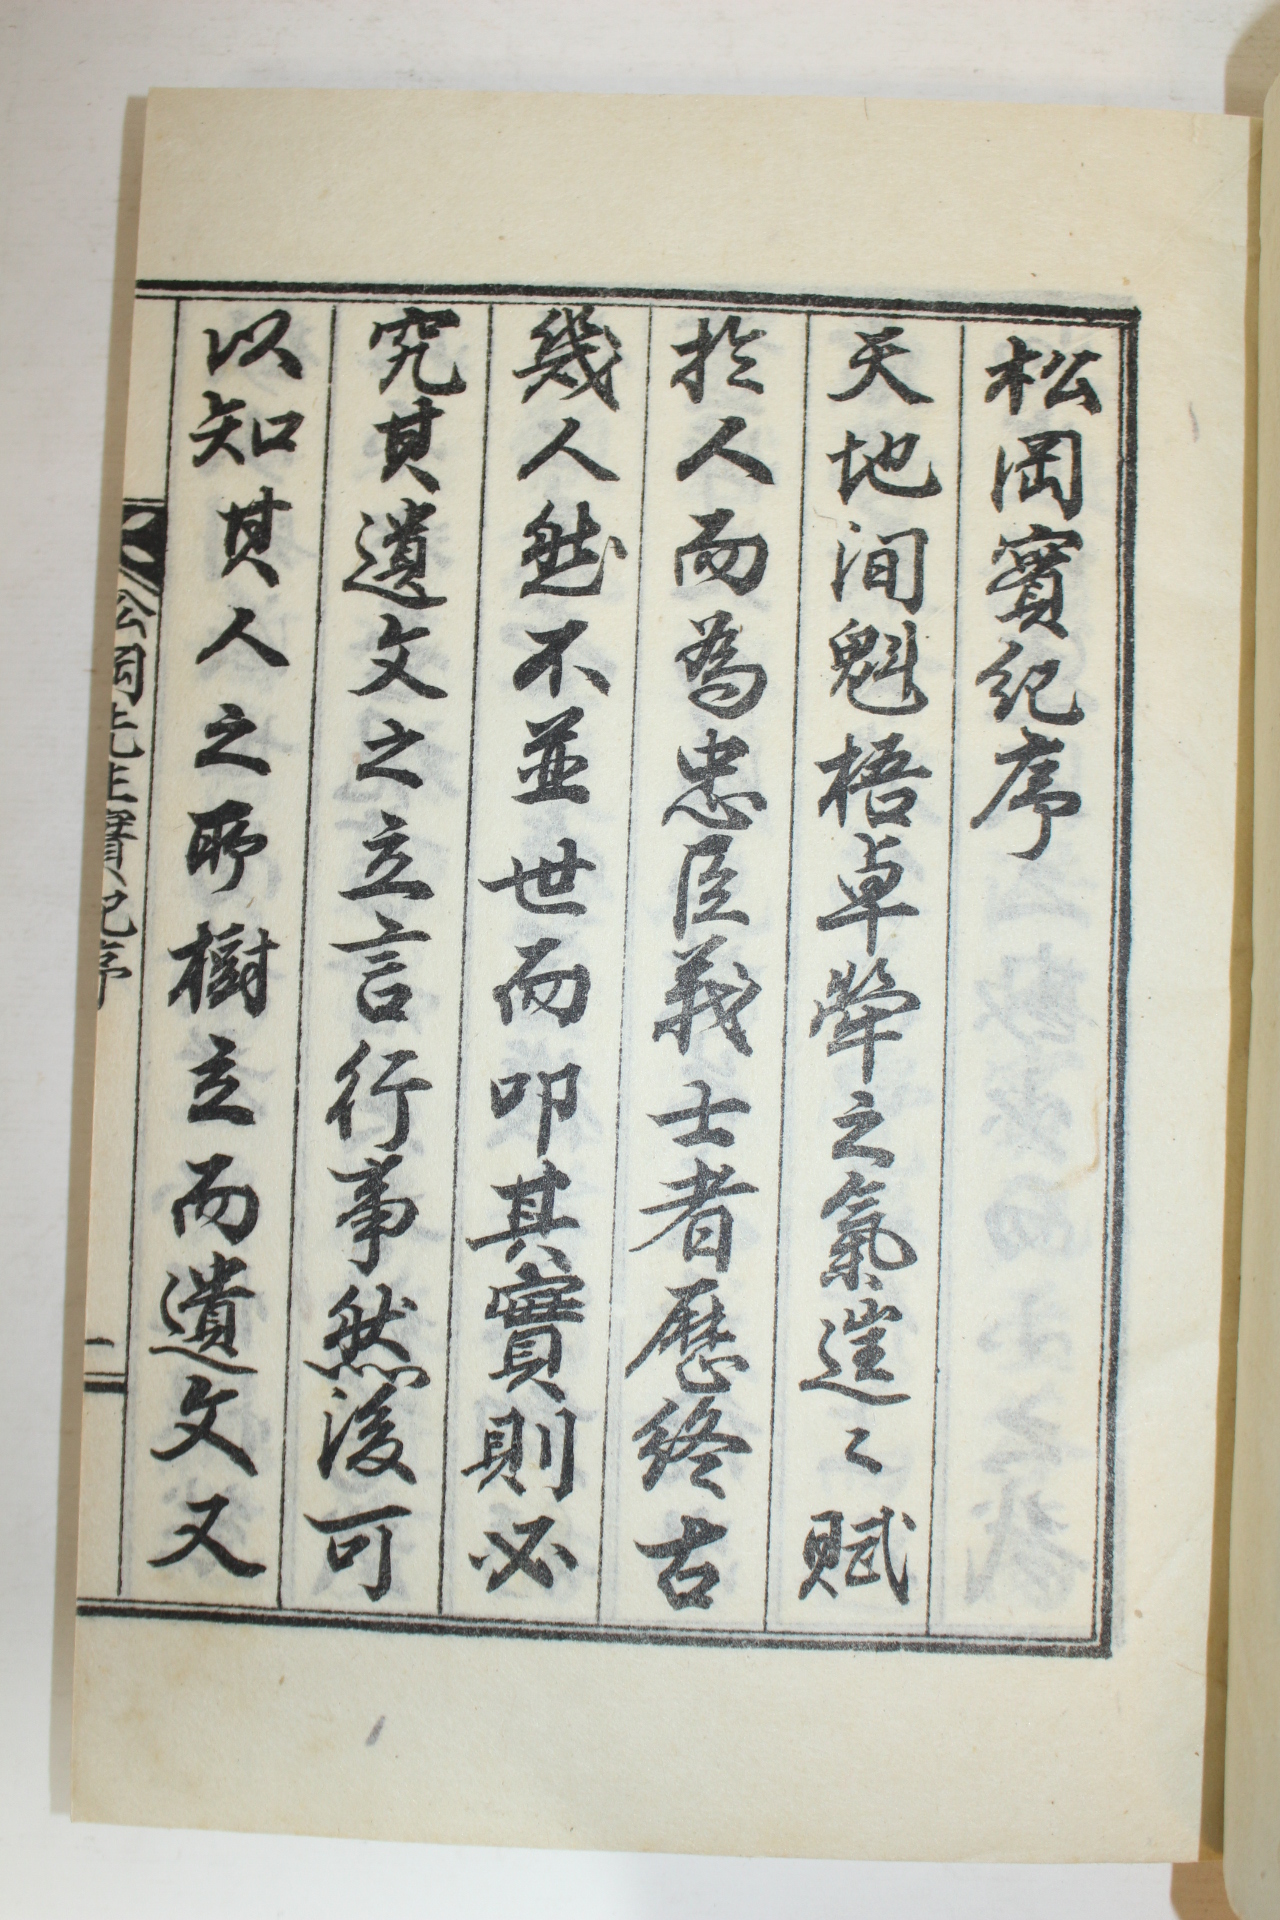 松岡實紀序
天地间魁梧卓犖之氣往〻賦
於人而為忠臣義士者歷終古
幾人然不並世而叩其實則必
究其遺文之立言行事然後可
以知其人之所樹立而遺文又
松岡先生實紀序
一